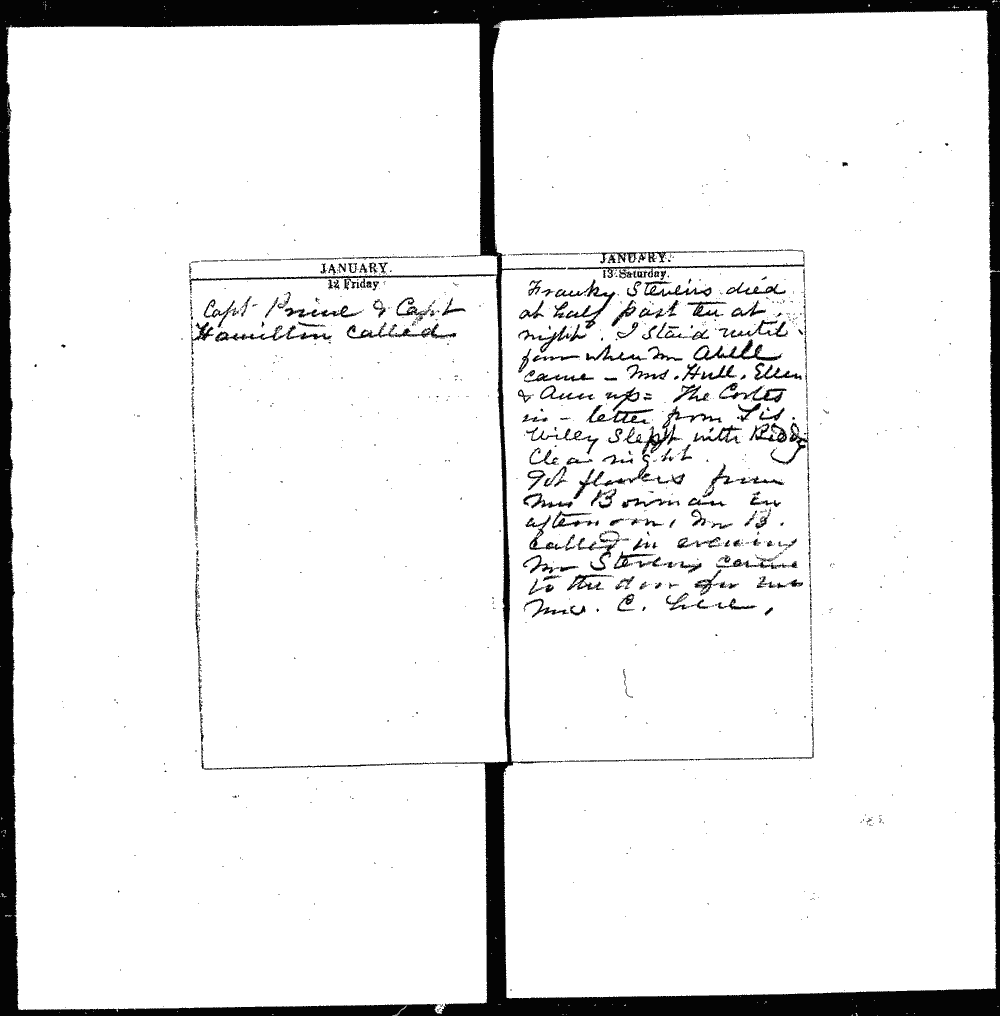 JANUARY.
12 Friday
Capt Prime & Capt
Hamilton called
JANUARY.
13 Saturday.
Franky Stevens died
at half past ten at
night. I staid until
four when Mr Abell
came - Mrs. Hull, Ellen
& Ann up = The
in - letter from Sis.
Willy Slept with
Clear night.
Got flowers from
Mrs Bowman in
afternoon, Mr B.
called in evening
Mr Stevens came
to the door for me
Mrs. C. here,